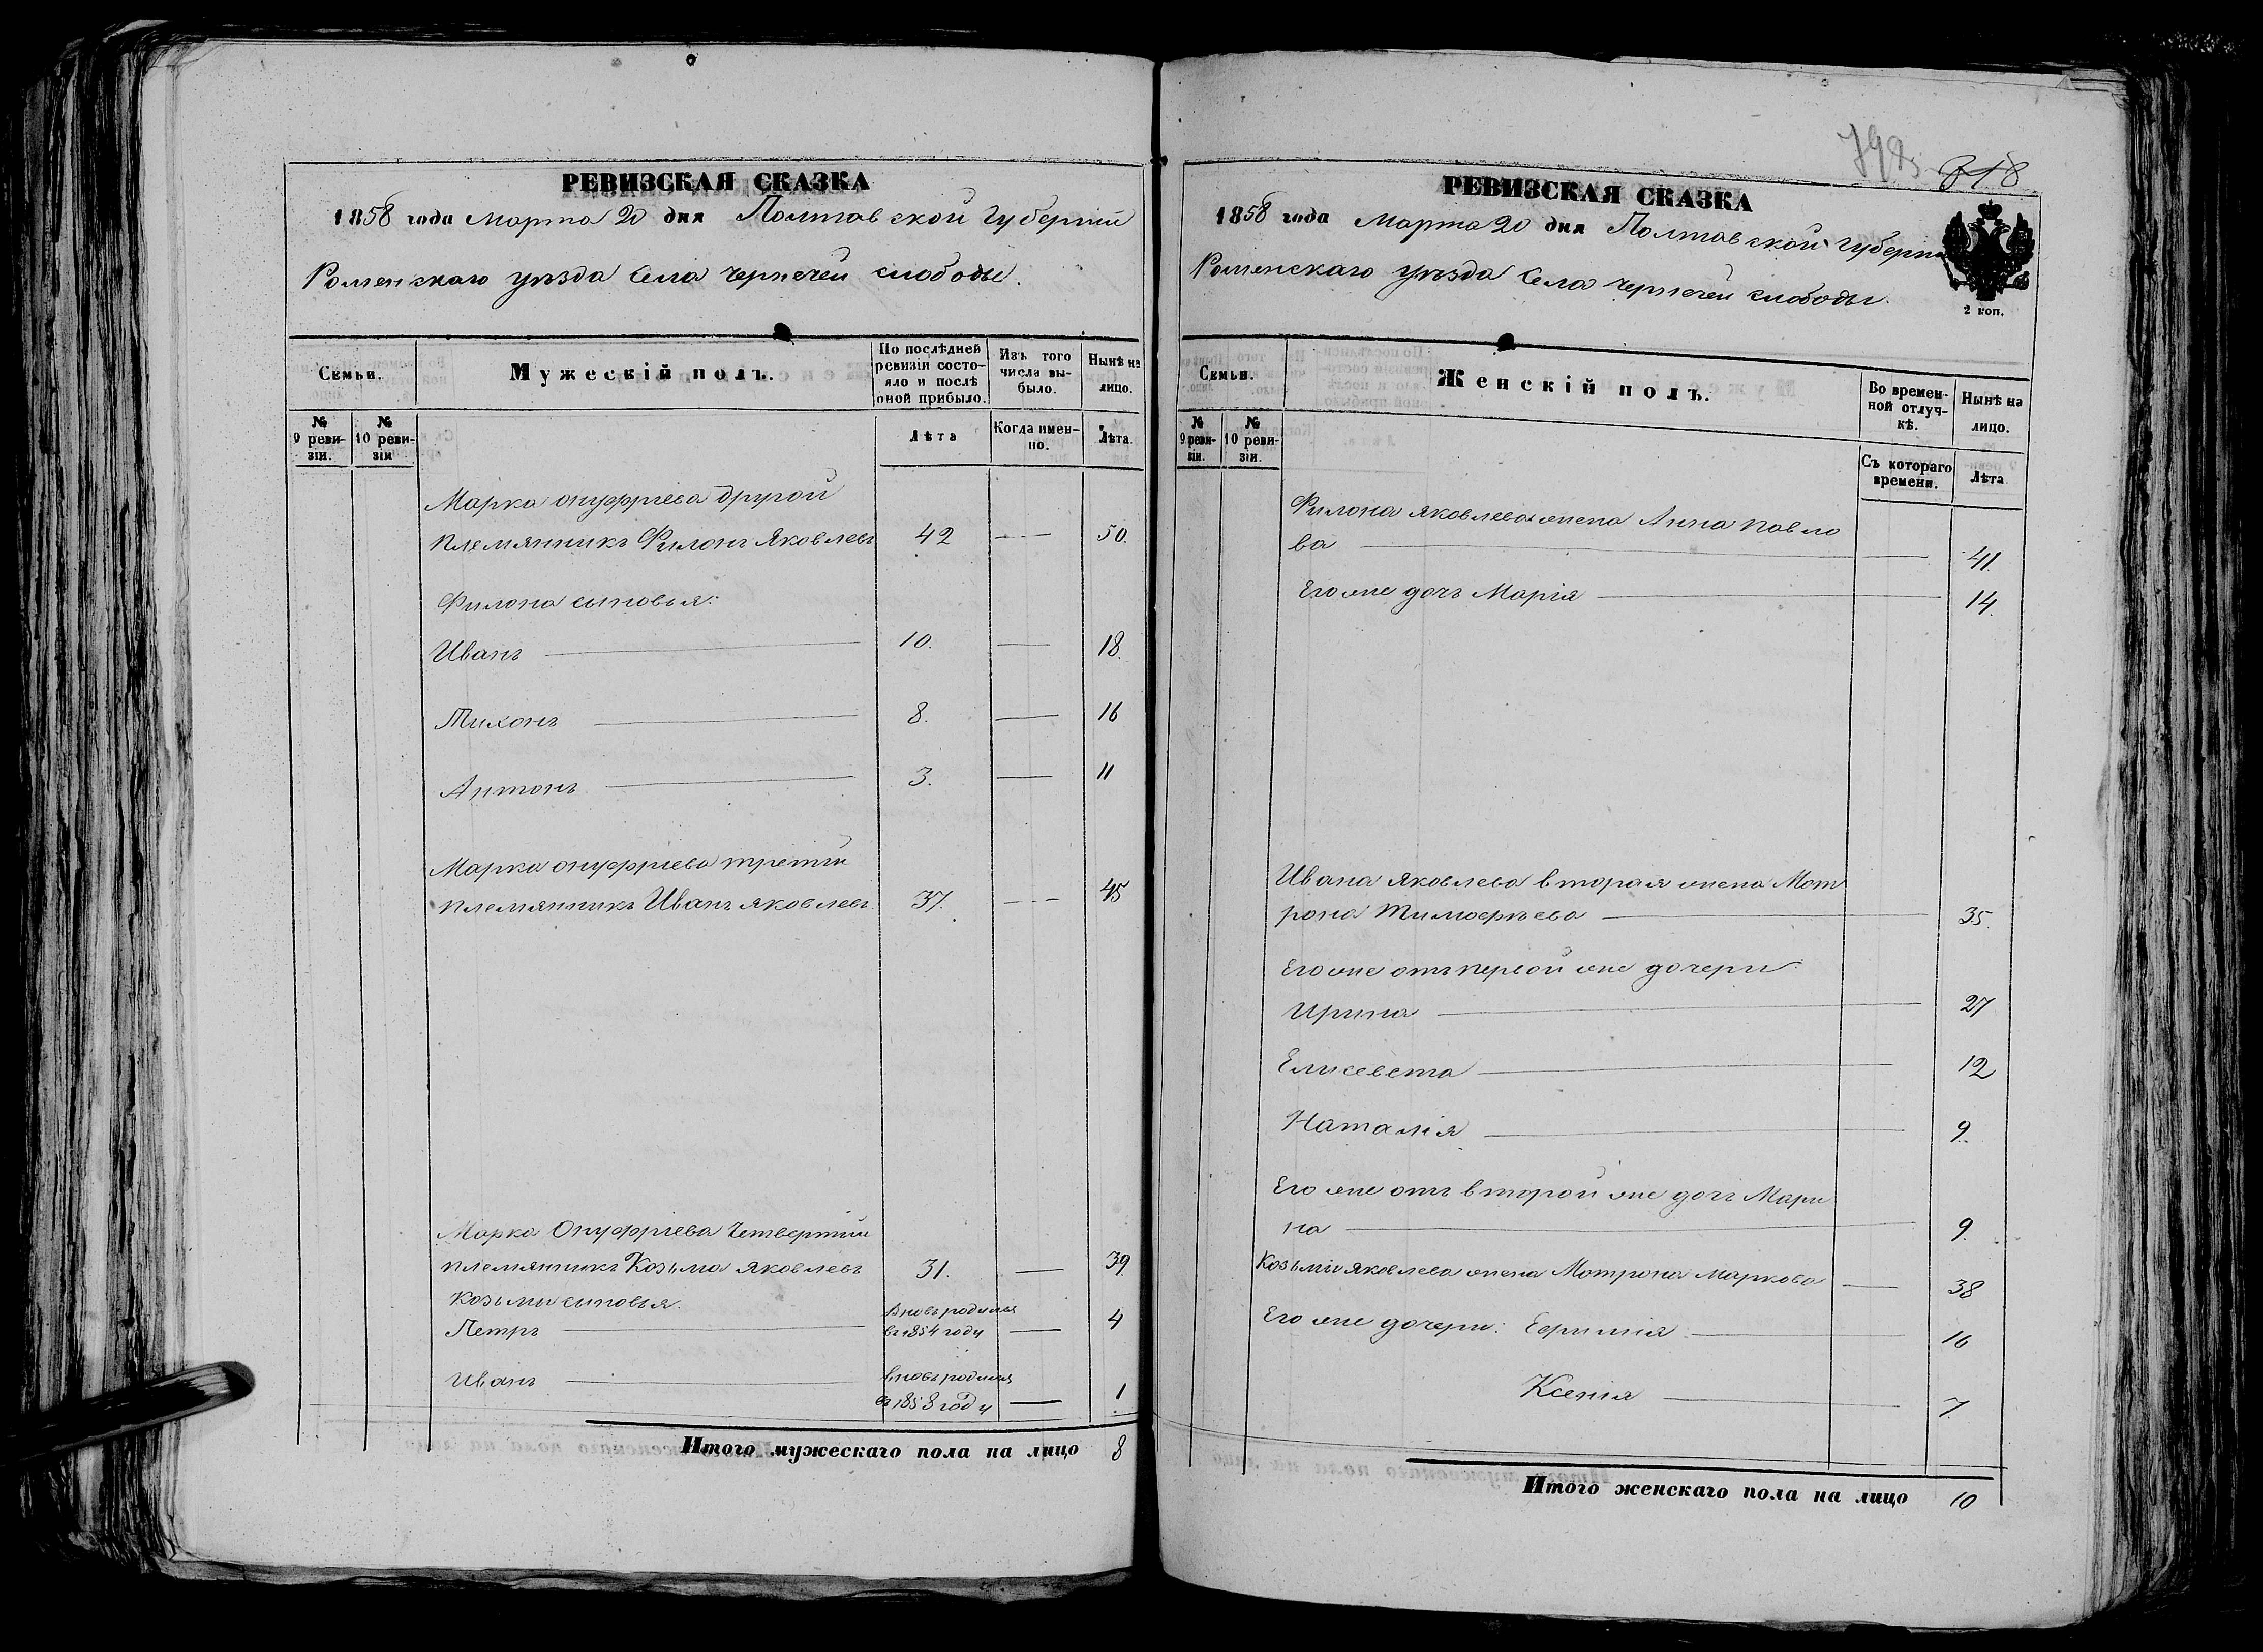 РЕВИЗСКАЯ СКАЗКА
1858 года Марта 20 дня Полтавской Губерніи
Роменскаго уѣзда Села Чернечей слободы.
Семьи.
Мужескій полъ.
По послѣдней ревизіи состо-
яло и послѣ
оной прибыло.
Изъ того
числа вы-
было.
Нынѣ на
лицо.
№
9 реви-
зіи.
№
10 реви-
зіи
Лѣта
Когда имен-
но.
Лѣта.
Марка онуфріева другой
племянникъ Филонъ Яковлевъ 42 — 50.
Филона сыновья:
Иванъ — 10. — 18.
Тихонъ — 8. — 16
Антонъ — 3. — 11
Марка онуфріева третій
племянникъ Иванъ яковлевъ 37. — 45
Марка Онуфріева Четвертый
племянникъ Козьма яковлевъ 31. — 39.
Козьмы сыновья.
Петръ — вновь родился
въ 1854 году — 4
Иванъ — вновь родился
въ 1858 году — 1
Итого мужескаго пола на лицо 8
798
318
РЕВИЗСКАЯ СКАЗКА
1858 года Марта 20 дня Полтавской Губерніи
Роменскаго уѣзда Села Чернечей слободы.
2 коп.
Семьи.
Женскій полъ.
Во времен-
ной отлуч-
кѣ.
Нынѣ на
лицо.
№
9 реви-
зіи.
№
10 реви-
зіи.
Съ котораго
времени.
Лѣта
Филона яковлева жена Анна Павло
ва — 41.
Его же дочь Марія — 14.
Ивана Яковлева вторая жена Мот
рона Тимофѣева — 35.
Его же отъ первой жены дочери:
Ирина — 27
Елисевета — 12
Наталія — 9.
Его же отъ второй жены дочь Мари
на — 9.
Козьмы яковлева жена Мотрона Маркова — 38
Его же дочери: Ефимія — 16
Ксенія — 7.
Итого женскаго пола на лицо 10